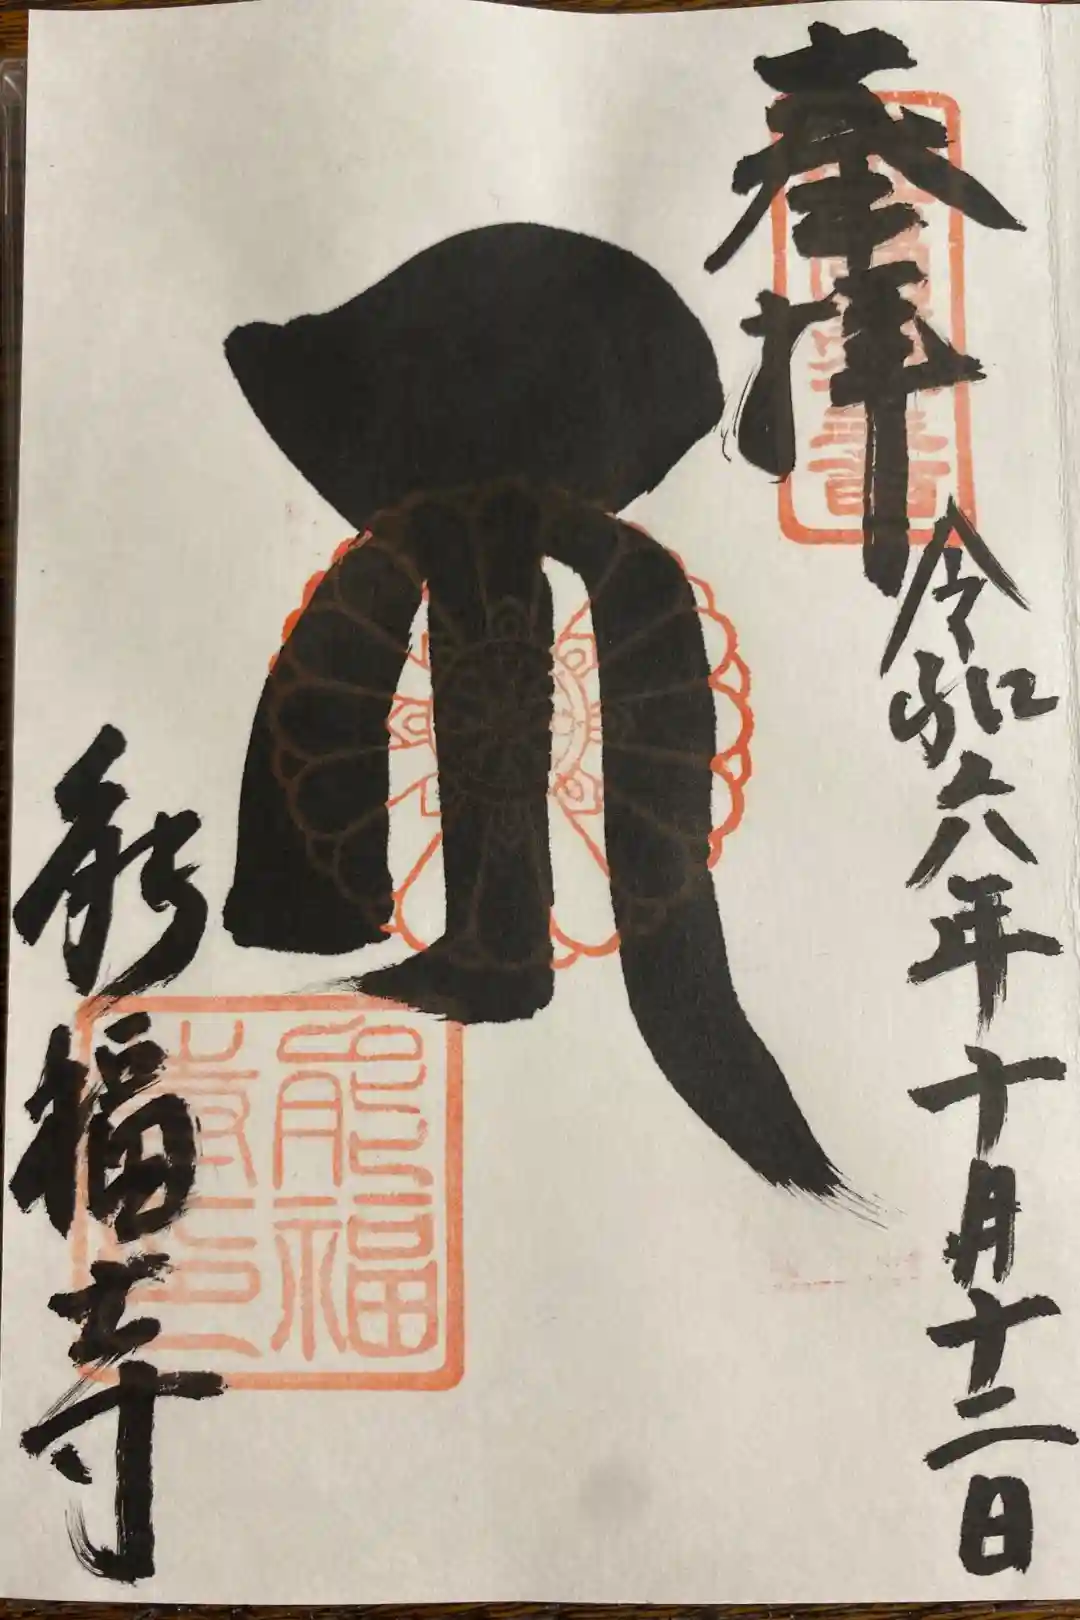 奉拝
令和六年十月十二日
能福寺
能福寺印